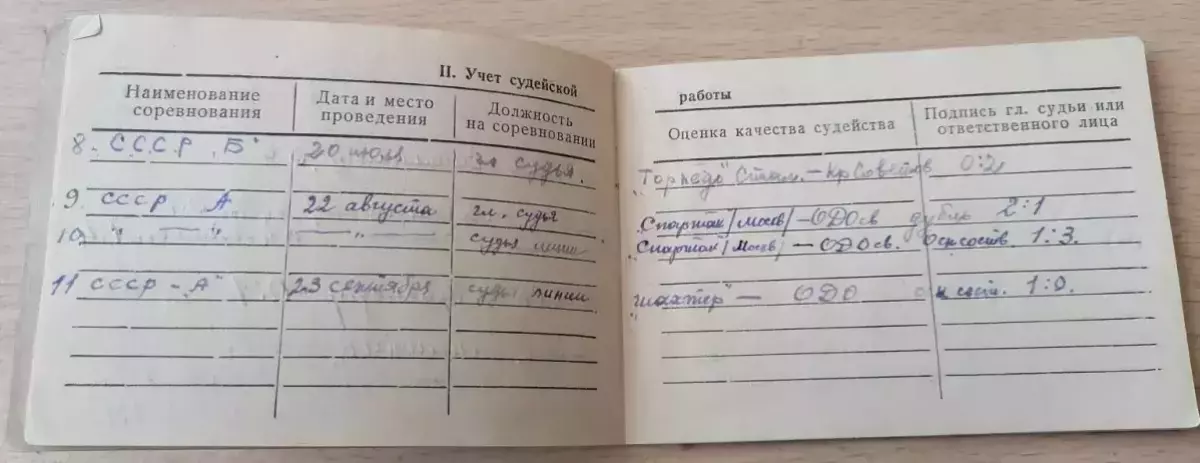 II. Учет судейской
Наименование соревнования
Дата и место проведения
Должность на соревновании
8. СССР „Б"
20 июля
судья.
9 СССР А
22 августа
гл. судья
10 " — "
— " —
судья линии
11 СССР - А"
23 сентября
судья линии
работы
Оценка качества судейства
Подпись гл. судьи или ответственного лица
„Торпедо" Стал. – Кр Советов 0:2
Спартак /Москв/ – ОДОсв дубль 2:1
Спартак /Москв/ – ОДОсв. Осн состав. 1:3.
„Шахтер" — ОДО сост. 1:0.